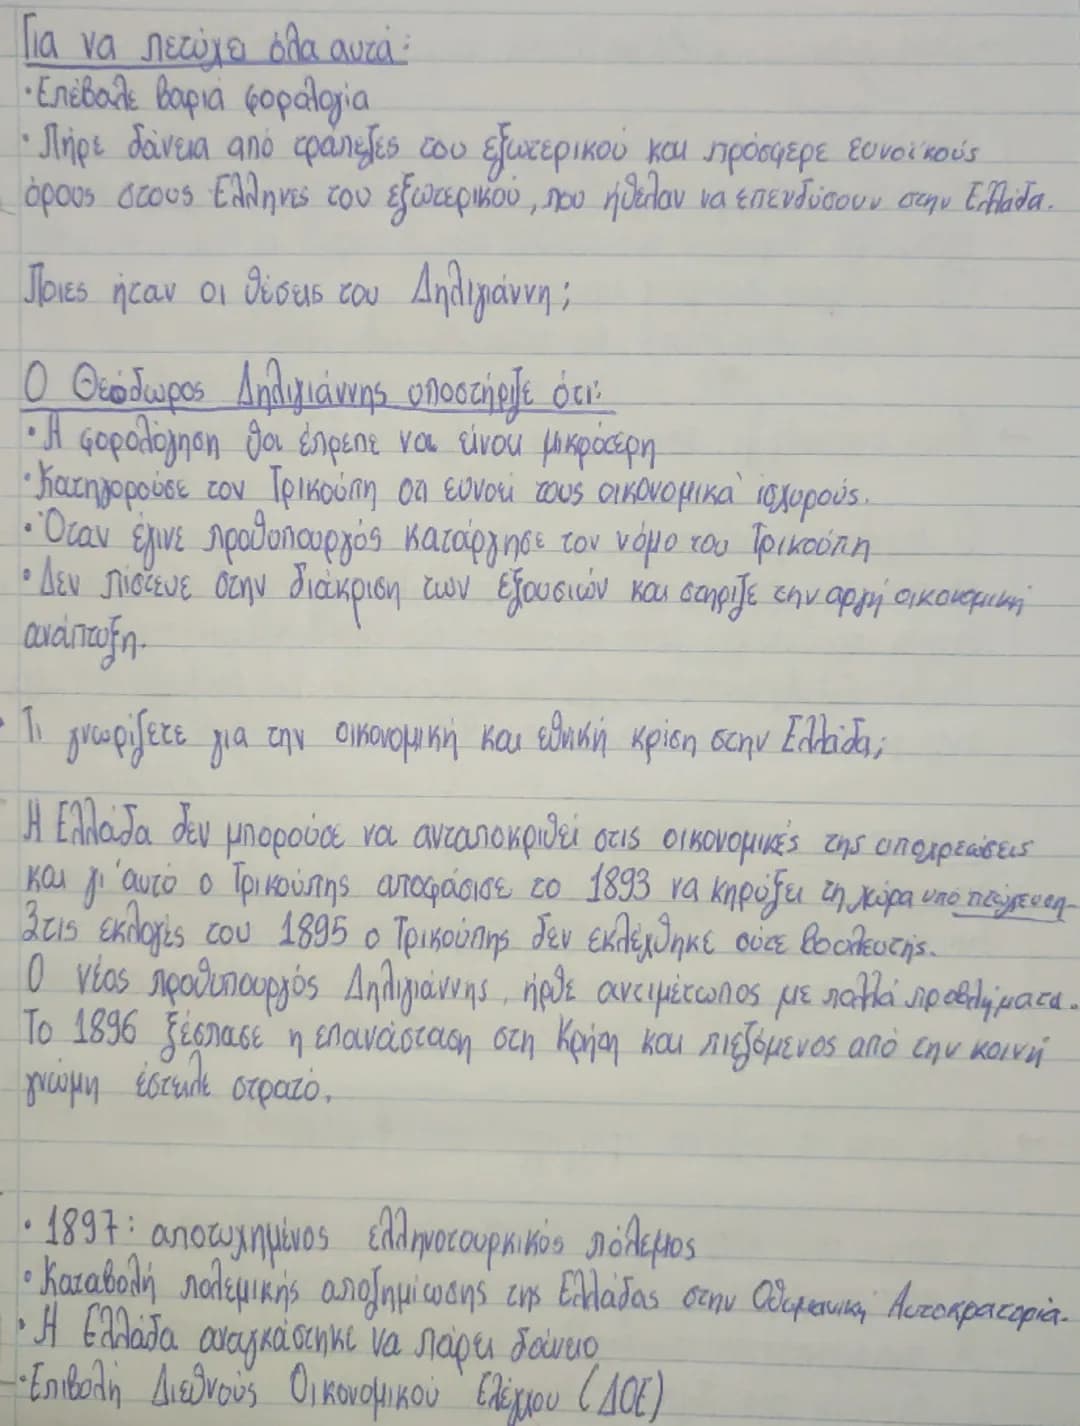 Για να πετύχει όλα αυτά:
• Επέβαλε βαριά φορολογία
• Πήρε δάνεια από τράπεζες του εξωτερικού και πρόσφερε ευνοϊκούς
όρους στους Έλληνες του εξωτερικού, που ήθελαν να επενδύσουν στην Ελλάδα.
Ποιες ήταν οι θέσεις του Δηλιγιάννη;
Ο Θεόδωρος Δηλιγιάννης υποστήριξε ότι:
• Η φορολόγηση θα έπρεπε να είναι μικρότερη
• Κατηγορούσε τον Τρικούπη ότι ευνοεί τους οικονομικά ισχυρούς.
• Όταν έγινε πρωθυπουργός κατάργησε τον νόμο του Τρικούπη
• Δεν πίστευε στην διάκριση των εξουσιών και στήριξε την αργή οικονομική
ανάπτυξη.
Τι γνωρίζετε για την οικονομική και εθνική κρίση στην Ελλάδα;
Η Ελλάδα δεν μπορούσε να ανταποκριθεί στις οικονομικές της υποχρεώσεις
και γι' αυτό ο Τρικούπης αποφάσισε το 1893 να κηρύξει τη χώρα υπό πτώχευση.
Στις εκλογές του 1895 ο Τρικούπης δεν εκλέχθηκε ούτε βουλευτής.
Ο νέος πρωθυπουργός Δηλιγιάννης, ήρθε αντιμέτωπος με πολλά προβλήματα.
Το 1896 ξέσπασε η επανάσταση στη Κρήτη και πιεζόμενος από την κοινή
γνώμη έστειλε στρατό.
• 1897: αποτυχημένος ελληνοτουρκικός πόλεμος
• Καταβολή πολεμικής αποζημίωσης της Ελλάδας στην Οθωμανική Αυτοκρατορία.
• Η Ελλάδα αναγκάστηκε να πάρει δάνειο
• Επιβολή Διεθνούς Οικονομικού Ελέγχου (ΔΟΕ)